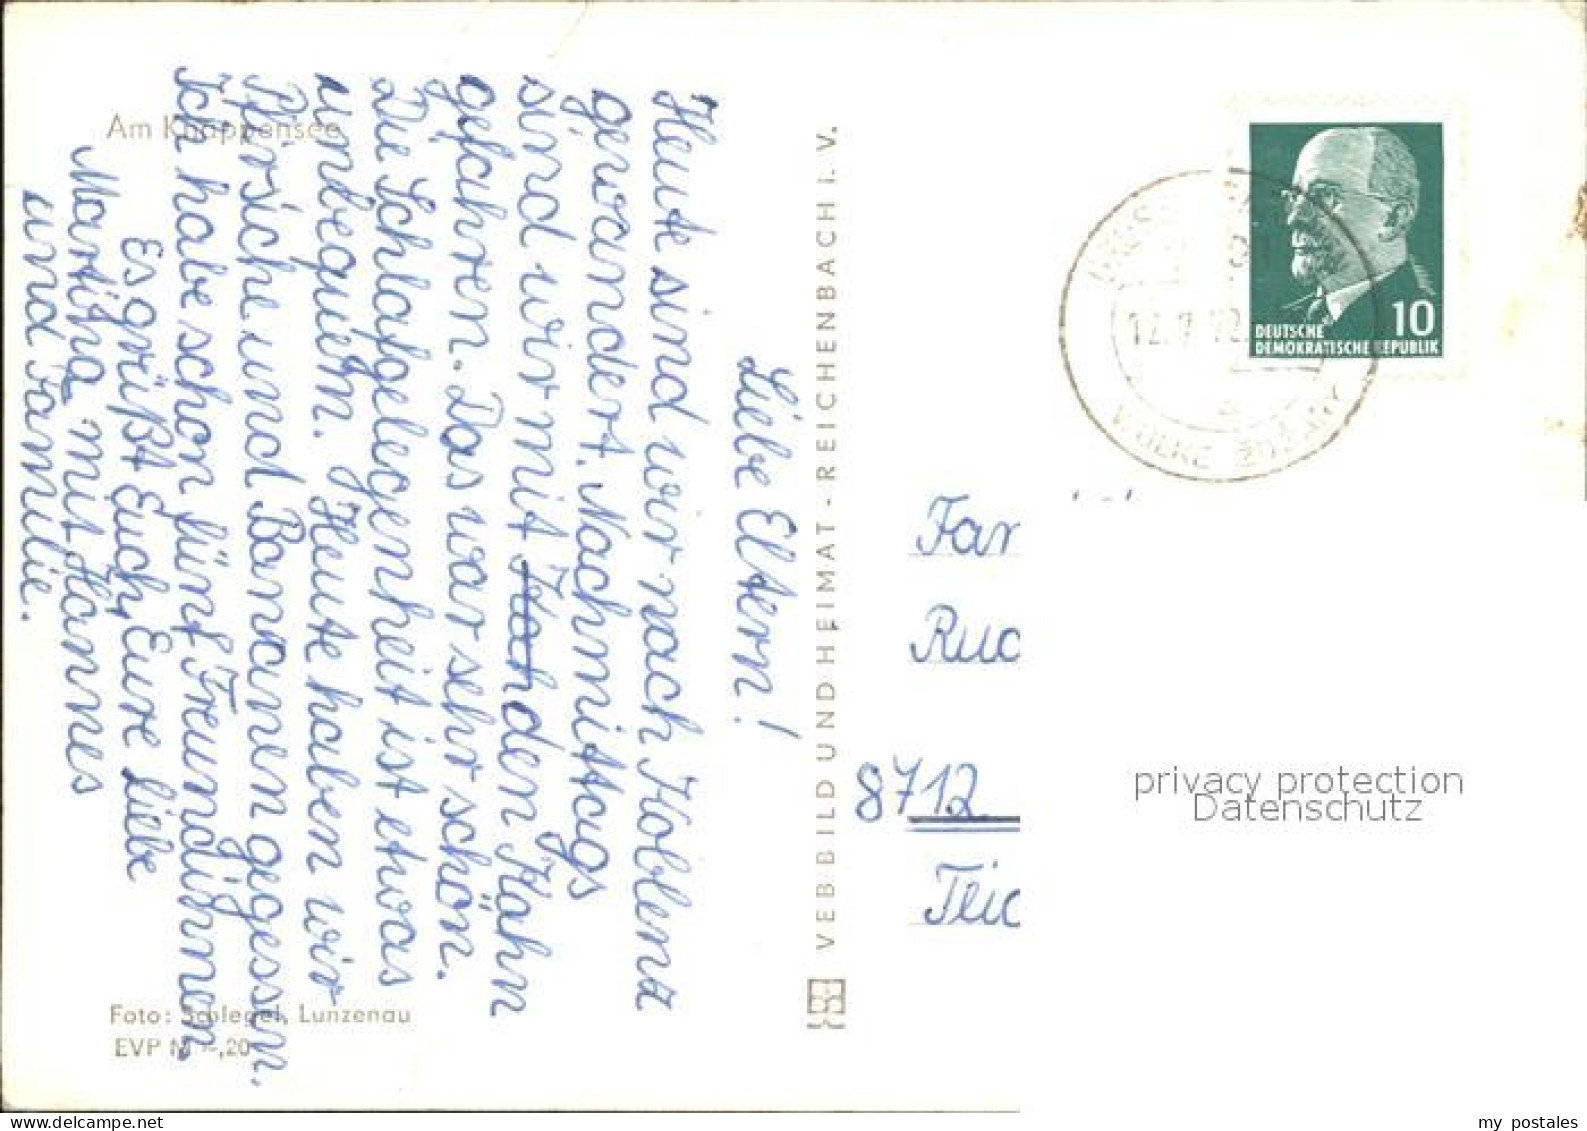 Am Knappensee
Liebe Eltern!
Heute sind wir nach Koblenz
gewandert. Nachmittags
sind wir mit den Kahn
gefahren. Das war sehr schön.
Die Schlafgelegenheit ist etwas
unbequem. Heute haben wir
Pfirsiche und Bananen gegessen.
Ich habe schon fünf Freundinnen.
Es grüßt Euch, Eure liebe
Martina mit Hannes
und Familie.
Foto: Schlegel, Lunzenau
EVP M -,20
VEB BILD UND HEIMAT - REICHENBACH I. V.
10
DEUTSCHE
DEMOKRATISCHE REPUBLIK
8712
privacy protection
Datenschutz
my postales